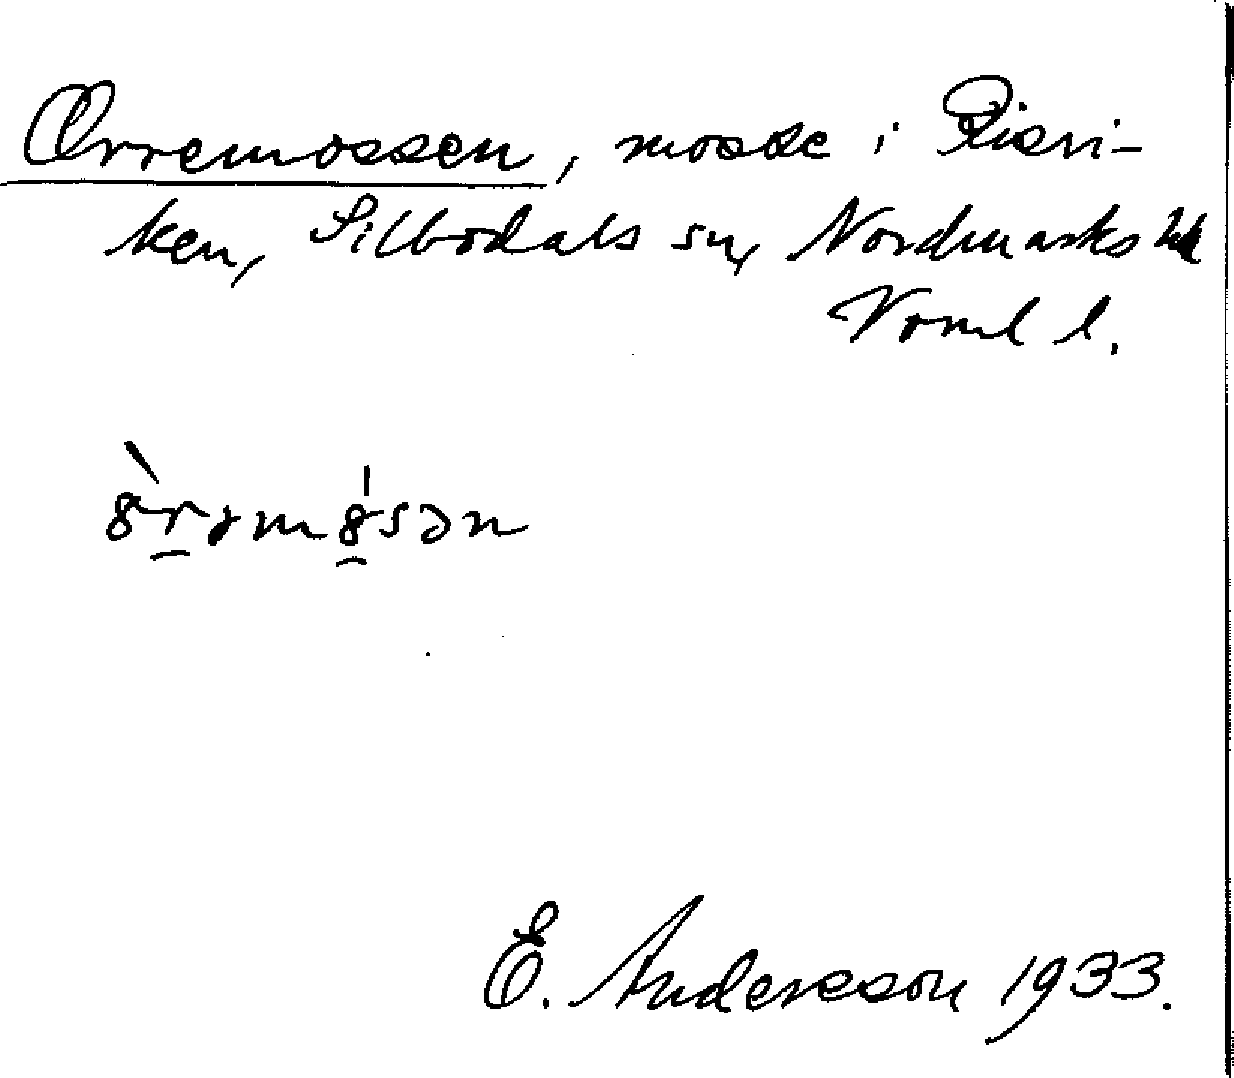 Orremossen, mosse i Risvi-
ken, Silbodals sn, Nordmarks hd
Vrml l.
E. Andersson 1933.